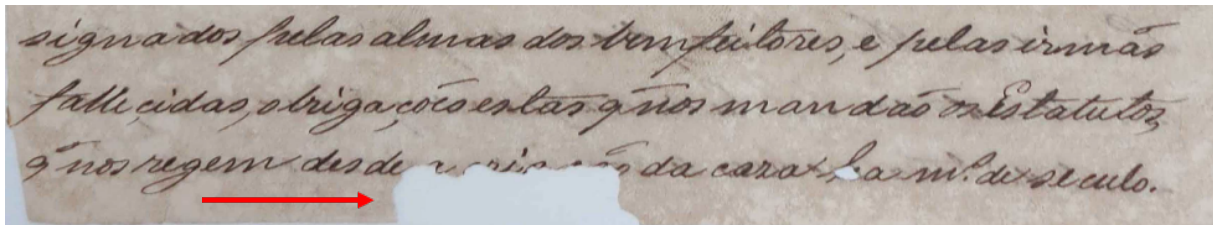 signados pelas almas dos bemfeitores, e pelas irmãs
fallecidas, obrigações estas q̃ nos mandão os Estatutos,
q̃ nos regem desde a criação da caza ha m.º de seculo.